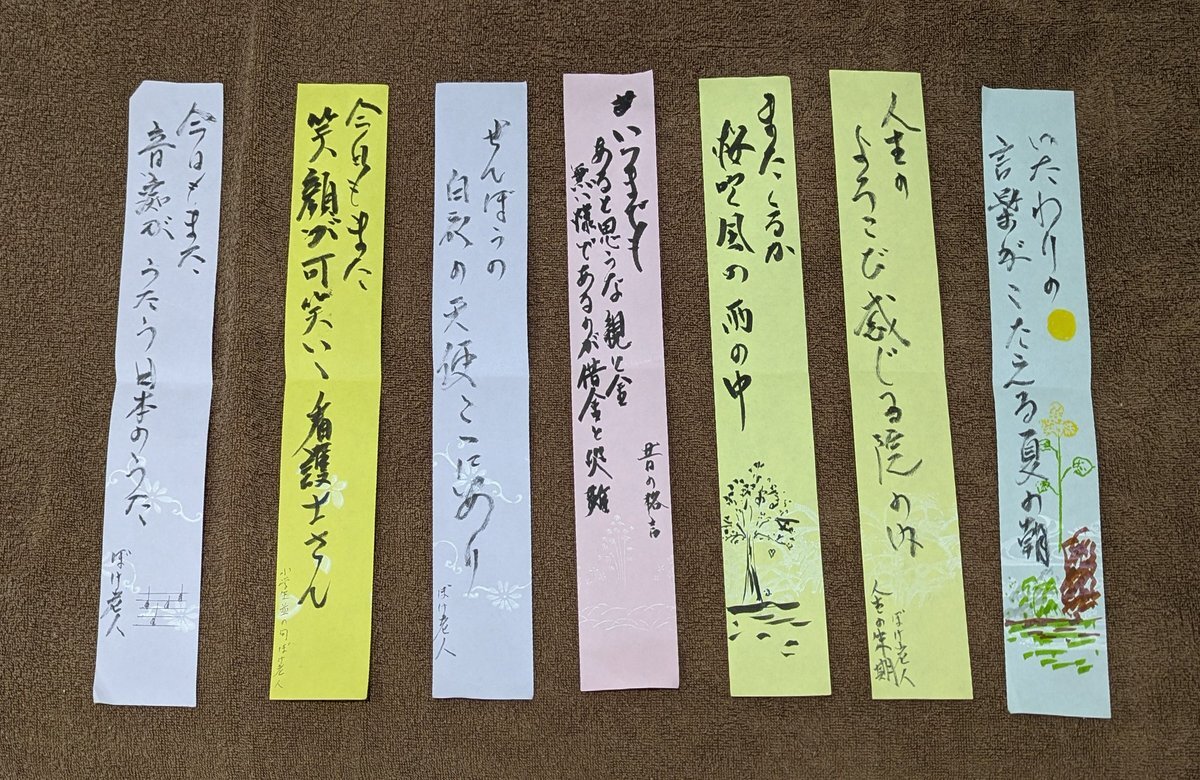 いたわりの
言葉がこたえる夏の朝
人生の
よろこび感じる院の内
ぼけ老人
人生の末期
またくるか
桜吹風の雨の中
いつまでも
あると思うな親と金
無い様であるのが借金と災難
昔の格言
せんぼうの
白衣の天使こゝにあり
ぼけ老人
今日もまた
笑顔が可笑いゝ看護士さん
小学生並の句
今日もまた
音痴がうたう日本のうた
ぼけ老人